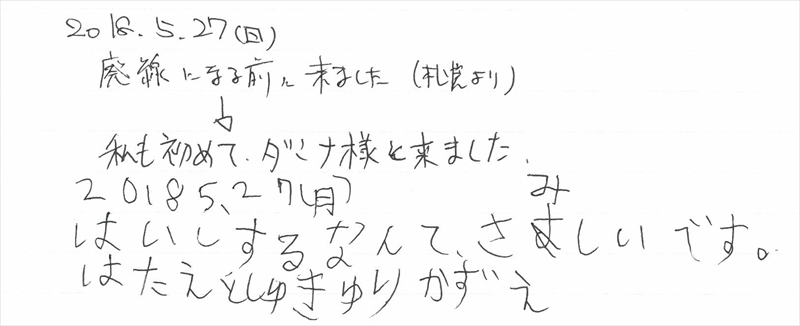 2018.5.27(日)
廃線になる前に来ました (札幌より)
↓
私も初めて、ダンナ様と来ました.
2018 5、27(月)
はいしするなんて、さみしいです。
はたえ としゆき ゆり かずえ